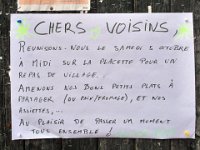 CHERS VOISINS,
REUNISSONS-NOUS LE SAMEDI 5 OCTOBRE
À MIDI SUR LA PLACETTE POUR UN
REPAS DE VILLAGE.
AMENONS NOS BONS PETITS PLATS À
PARTAGER (OU PAS), ET NOS
ASSIETTES,...
AU PLAISIR DE PASSER UN MOMENT
TOUS ENSEMBLE !